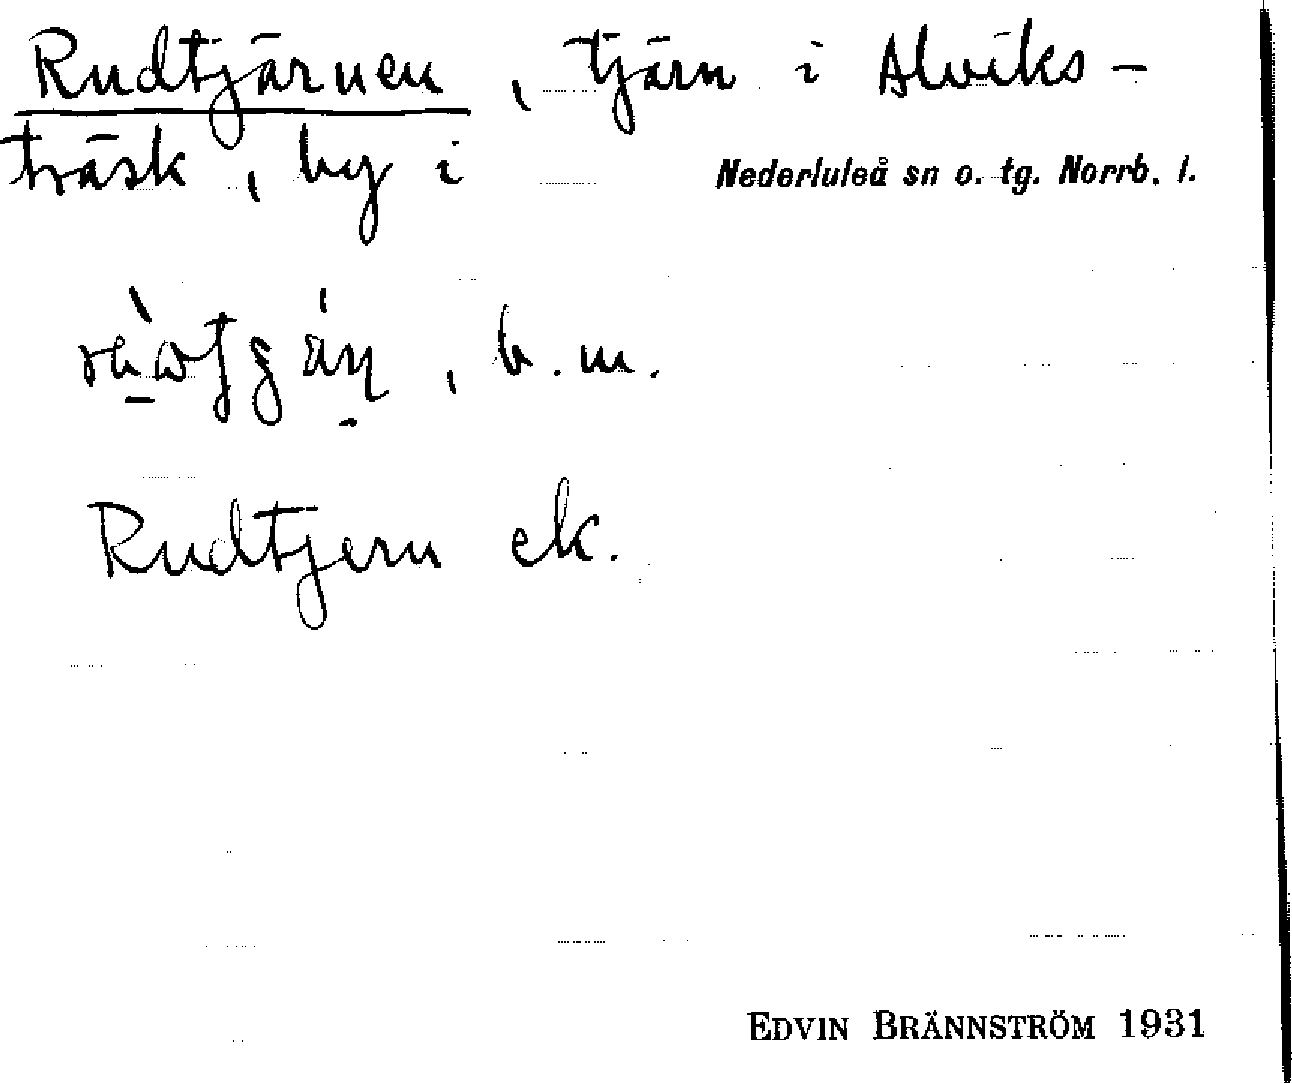 Rudtjärnen, tjärn i Alviks-
träsk, by i Nederluleå sn o. tg. Norrb. l.
, b. m.
Rudtjern ek.
EDVIN BRÄNNSTRÖM 1931